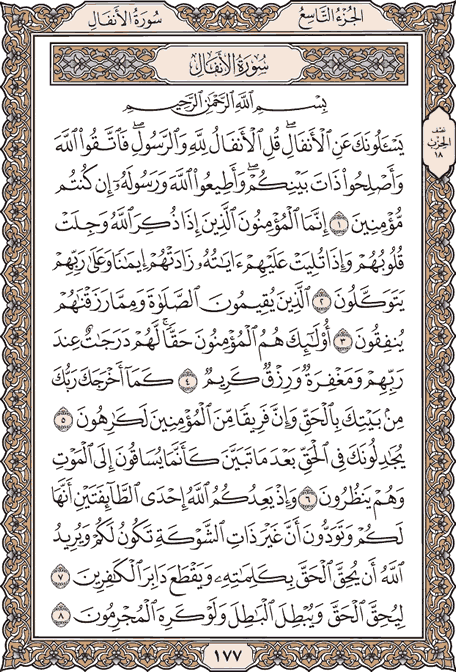 سُورَةُ الأَنفَالِ الجُزْءُ التَّاسِعُ
سُورَةُ الأَنفَالِ
بِسْمِ ٱللَّهِ ٱلرَّحْمَٰنِ ٱلرَّحِيمِ
يَسْـَٔلُونَكَ عَنِ ٱلْأَنفَالِۖ قُلِ ٱلْأَنفَالُ لِلَّهِ وَٱلرَّسُولِۖ فَٱتَّقُوا۟ ٱللَّهَ
نصف الحزب ١٨
وَأَصْلِحُوا۟ ذَاتَ بَيْنِكُمْۖ وَأَطِيعُوا۟ ٱللَّهَ وَرَسُولَهُۥٓ إِن كُنتُم
مُّؤْمِنِينَ ١ إِنَّمَا ٱلْمُؤْمِنُونَ ٱلَّذِينَ إِذَا ذُكِرَ ٱللَّهُ وَجِلَتْ
قُلُوبُهُمْ وَإِذَا تُلِيَتْ عَلَيْهِمْ ءَايَٰتُهُۥ زَادَتْهُمْ إِيمَٰنًا وَعَلَىٰ رَبِّهِمْ
يَتَوَكَّلُونَ ٢ ٱلَّذِينَ يُقِيمُونَ ٱلصَّلَوٰةَ وَمِمَّا رَزَقْنَٰهُمْ
يُنفِقُونَ ٣ أُو۟لَٰٓئِكَ هُمُ ٱلْمُؤْمِنُونَ حَقًّاۚ لَّهُمْ دَرَجَٰتٌ عِندَ
رَبِّهِمْ وَمَغْفِرَةٌ وَرِزْقٌ كَرِيمٌ ٤ كَمَآ أَخْرَجَكَ رَبُّكَ
مِنۢ بَيْتِكَ بِٱلْحَقِّ وَإِنَّ فَرِيقًا مِّنَ ٱلْمُؤْمِنِينَ لَكَٰرِهُونَ ٥
يُجَٰدِلُونَكَ فِي ٱلْحَقِّ بَعْدَ مَا تَبَيَّنَ كَأَنَّمَا يُسَاقُونَ إِلَى ٱلْمَوْتِ
وَهُمْ يَنظُرُونَ ٦ وَإِذْ يَعِدُكُمُ ٱللَّهُ إِحْدَى ٱلطَّآئِفَتَيْنِ أَنَّهَا
لَكُمْ وَتَوَدُّونَ أَنَّ غَيْرَ ذَاتِ ٱلشَّوْكَةِ تَكُونُ لَكُمْ وَيُرِيدُ
ٱللَّهُ أَن يُحِقَّ ٱلْحَقَّ بِكَلِمَٰتِهِۦ وَيَقْطَعَ دَابِرَ ٱلْكَٰفِرِينَ ٧
لِيُحِقَّ ٱلْحَقَّ وَيُبْطِلَ ٱلْبَٰطِلَ وَلَوْ كَرِهَ ٱلْمُجْرِمُونَ ٨
١٧٧